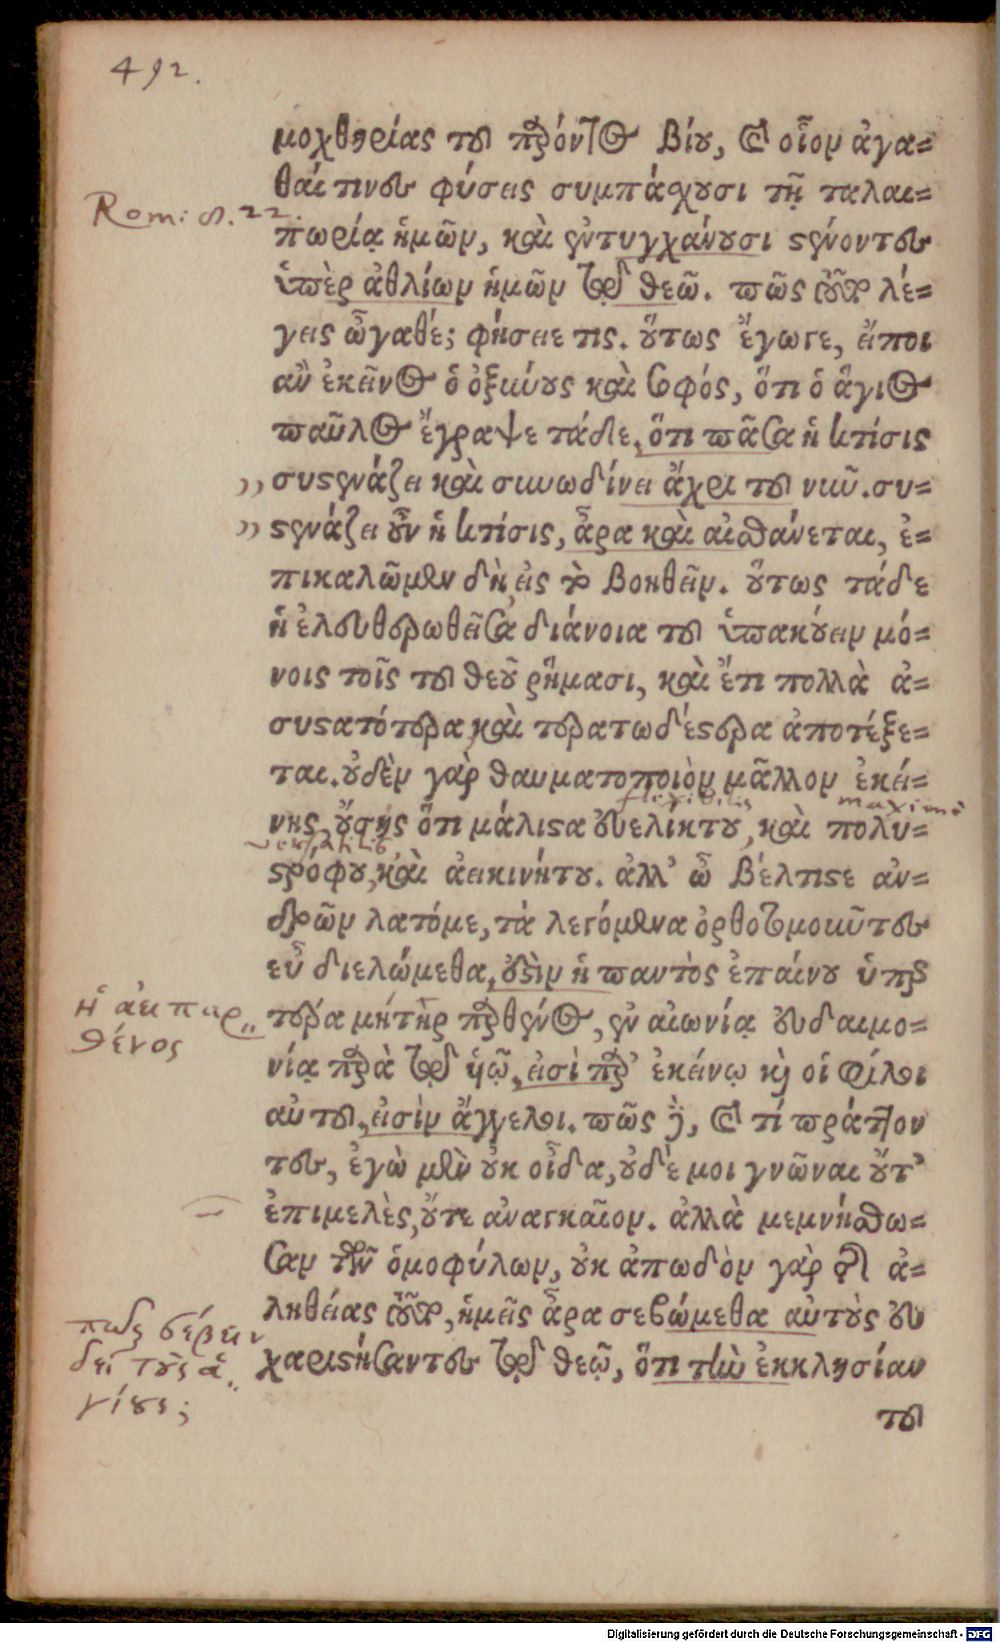 492.
μοχθηρίας τοῦ παρόντος βίου, καὶ οἷον ἀγα=
θαί τινες φύσεις συμπάσχουσι τῇ ταλαι=
Rom: 8. 22.
πωρίᾳ ἡμῶν, καὶ ἐντυγχάνουσι στένοντες
ὑπὲρ ἀθλίων ἡμῶν τῷ θεῷ. πῶς τοῦτο λέ=
γεις ὦγαθέ; φήσειε τις. οὕτως ἔγωγε, εἴποι
ἂν ἐκεῖνος ὁ ὀξύνους καὶ σοφός, ὅτι ὁ ἅγιος
παῦλος ἔγραψε τάδε, ὅτι πᾶσα ἡ κτίσις
,, συστενάζει καὶ συνωδίνει ἄχρι τοῦ νῦν. συ=
,, στενάζει οὖν ἡ κτίσις, ἆρα καὶ αἰσθάνεται, ἐ=
πικαλῶμεν δὴ εἰς τὸ βοηθεῖν. οὕτως τάδε
ἡ ἐλευθερωθεῖσα διάνοια τοῦ ὑπακούειν μό=
νοις τοῖς τοῦ θεοῦ ῥήμασι, καὶ ἔτι πολλὰ ἀ=
συστατότερα καὶ τερατωδέστερα ἀποτέξε=
ται. οὐδὲν γὰρ θαυματοποιὸν μᾶλλον ἐκεί=
flexibilis maximè
νης οὔσης ὅτι μάλιστα εὐελίκτου, καὶ πολυ=
στρόφου, καὶ ἀεικινήτου. ἀλλ' ὦ βέλτιστε ἀν=
δρῶν λατόμε, τὰ λεγόμενα ὀρθοτομοῦντες
εὖ διελώμεθα, ἔστιν ἡ παντὸς ἐπαίνου ὑπερ
Ἡ ἀειπαρ,,
τέρα μήτηρ παρθένος, ἐν αἰωνίᾳ εὐδαιμο=
θένος
νίᾳ παρὰ τῷ ὑῷ, εἰσὶ παρ' ἐκείνῳ καὶ οἱ φίλοι
αὐτοῦ, εἰσὶν ἄγγελοι. πῶς δὲ, καὶ τί πράττον
τες, ἐγὼ μὲν οὐκ οἶδα, οὐδέ μοι γνῶναι οὔτ'
ἐπιμελὲς, οὔτε ἀναγκαῖον. ἀλλὰ μεμνήσθω=
σαν τῶν ὁμοφύλων, οὐκ ἀπωδὸν γὰρ τῆς ἀ=
ληθείας τοῦτο, ἡμεῖς ἆρα σεβώμεθα αὐτοὺς εὐ
πῶς σέβειν
δεῖ τοὺς ἁ,,
γίους;
χαριστήσαντες τῷ θεῷ, ὅτι τὴν ἐκκλησίαν
τοῦ
Digitalisierung gefördert durch die Deutsche Forschungsgemeinschaft - DFG